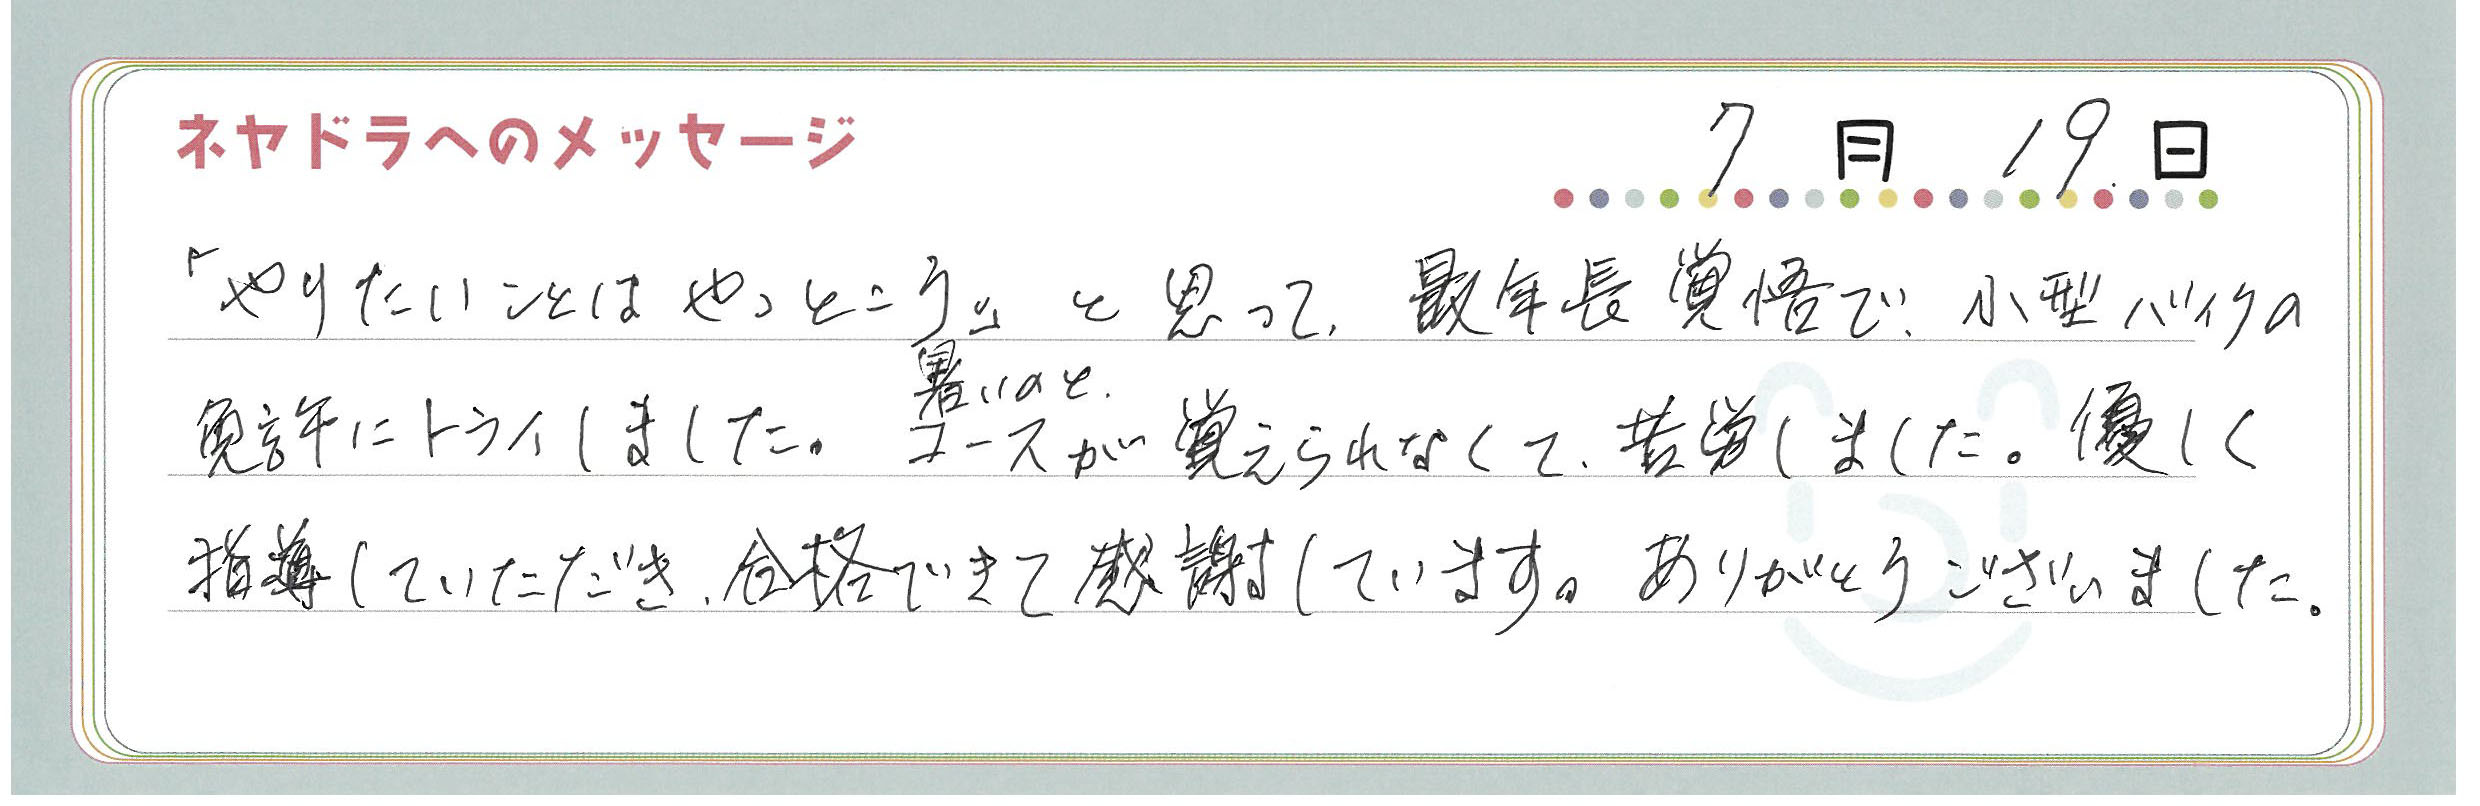 ネヤドラへのメッセージ
7月19日
「やりたいことはやっとこう」と思って、最年長覚悟で、小型バイクの
暑いのと、
免許にトライしました。コースが覚えられなくて、苦労しました。優しく
指導していただき、合格できて感謝しています。ありがとうございました。